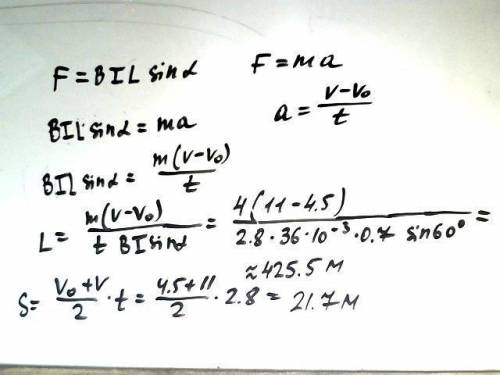 F = BIL sinα    F = ma
BIL sinα = ma    a = (v-v₀)/t
BIL sinα = m(v-v₀)/t
L = m(v-v₀)/(t BI sinα) = 4(11-4.5)/(2.8·36·10⁻³·0.7 sin60°) =
≈ 425.5 м
S = (v₀+v)/2 · t = (4.5+11)/2 · 2.8 = 21.7 м